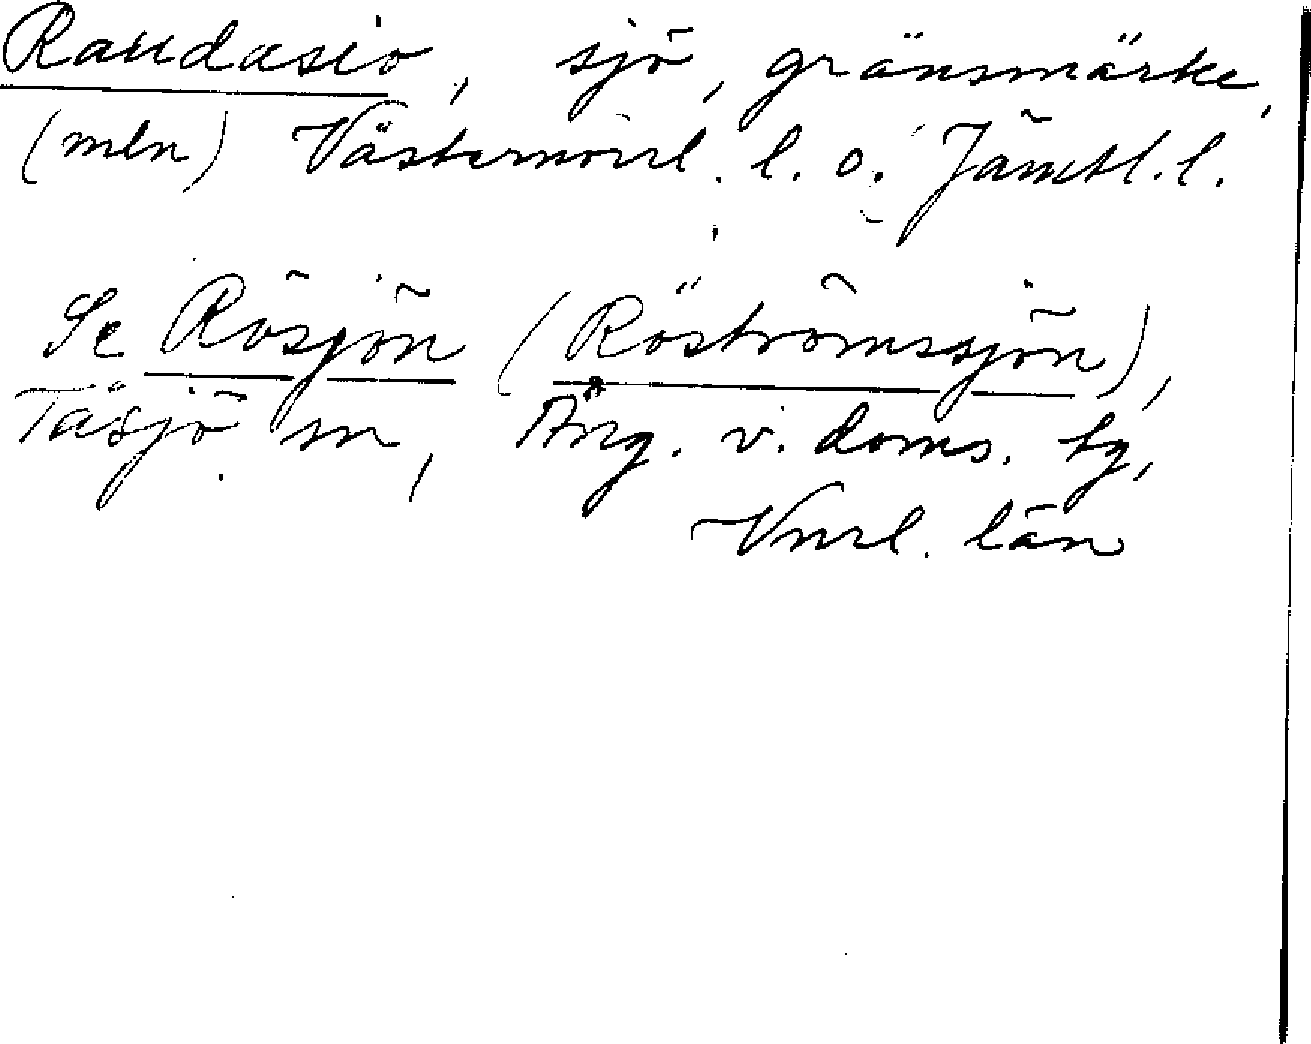 Raudasio, sjö, gränsmärke,
(mln) Västernorrl. l. o. Jämtl. l.
Se Rösjön (Röströmssjön),
Tåsjö sn, Ång. v. doms. tg,
Vnrl. län